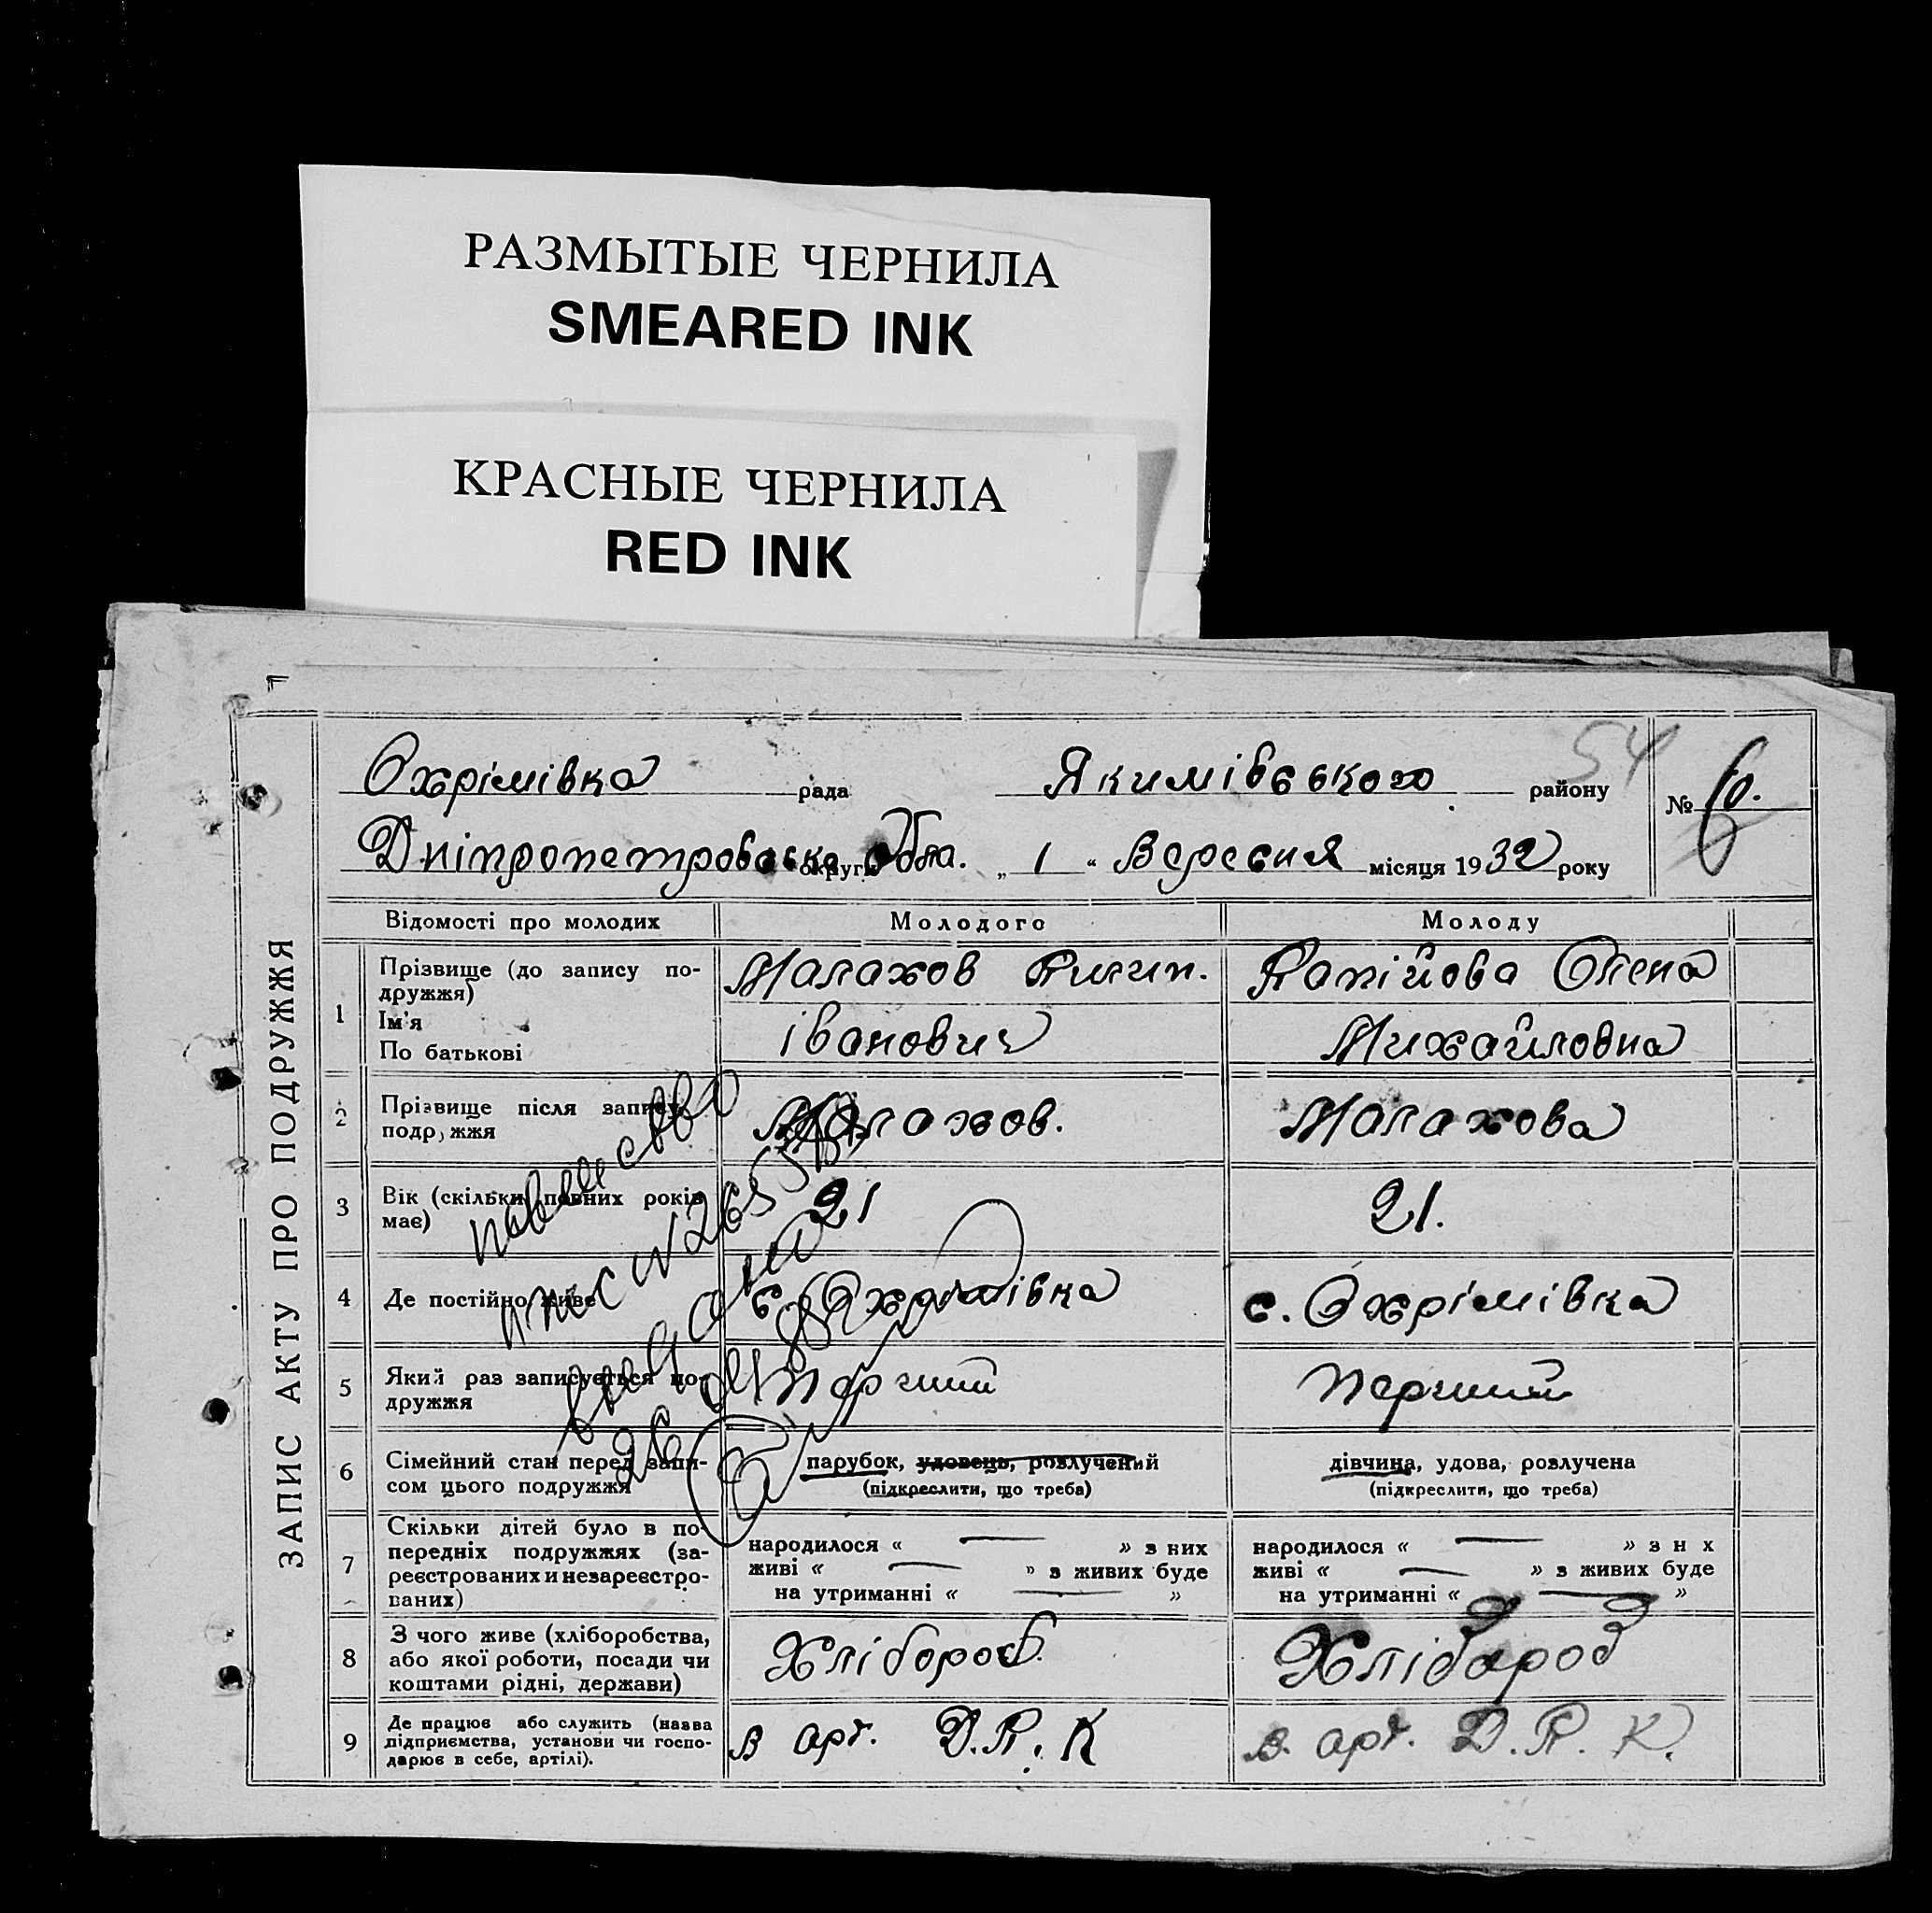 РАЗМЫТЫЕ ЧЕРНИЛА
SMEARED INK
КРАСНЫЕ ЧЕРНИЛА
RED INK
54
Охрімівка рада Якимівського району № 6.
Дніпропетровська округи Обла. „ 1 “ Вересня місяця 1932 року
ЗАПИС АКТУ ПРО ПОДРУЖЖЯ
Відомості про молодих Молодого Молоду
1 Прізвище (до запису по-
дружжя)
Ім'я
По батькові
Малахов
Іванович
Олена
Михайловна
2 Прізвище після запису
подружжя
Малахов. Малахова
3 Вік (скільки повних років
має)
21 21.
4 Де постійно живе с. Охрімівка с. Охрімівка
5 Який раз записується по-
дружжя
перший перший
6 Сімейний стан перед запи-
сом цього подружжя
парубок, удовець, розлучений
(підкреслити, що треба)
дівчина, удова, розлучена
(підкреслити, що треба)
7 Скільки дітей було в по-
передніх подружжях (за-
реєстрованих и незареєстро-
ваних)
народилося « — » з них
живі « — » з живих буде
на утриманні « — »
народилося « — » з н х
живі « — » з живих буде
на утриманні « — »
8 З чого живе (хліборобства,
або якої роботи, посади чи
коштами рідні, держави)
Хлібороб. Хлібороб
9 Де працює або служить (назва
підприємства, установи чи госпо-
дарює в себе, артілі).
в арт. в. арт.